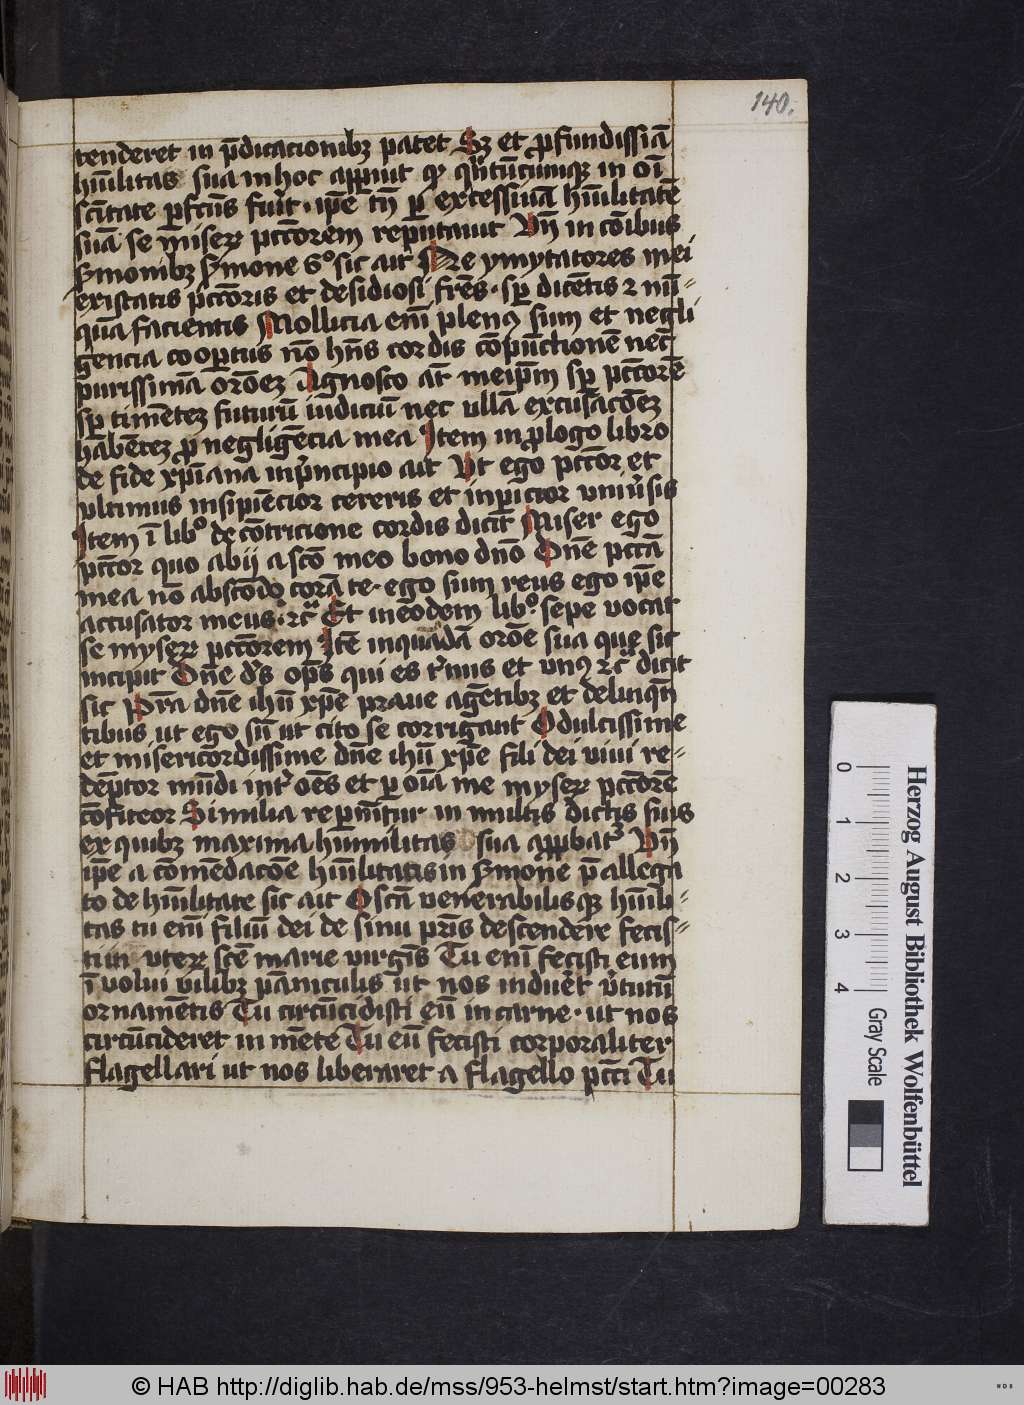 140.
tenderet in p̄dicacionibꝫ patet Sꝫ et ꝓfundissiā
hūilitas sua in hoc apparuit qꝫ qͣntūcumqꝫ in oī
scītate ꝑfctūs fuīt · ip̄e tn̄ ꝑ excessiuā hūilitatē
suā se miseꝝ pctōrem reputauit Vn̄ in cōibus
ẜmonibꝫ ẜmone 6º sic ait Ne ymytatores mei
existatis pctōris et desidiosi frēs · sꝑ dicētis ⁊ nū=
quā facientis Mollicia enī plenꝰ sum et negli
gencia coopertus nō hn̄s cordis cōpūctionē nec
purissimā orōeꝫ Agnosco at̄ meip̄m sꝑ pctōrē
sꝑ timētēꝫ futurū iudiciū nec vllā excusacōeꝫ
habētēꝫ pro negligēcia mea Item in plogo libro
de fide xp̄iana in pͥncipio ait Vt ego pctōr et
vltimus insipiēcior ceteris et inpicior vniuͥsis
Item ī libº de cōtricione cordis dicit Miser ego
pctōr quo abij a scō meo bono dnō Dn̄e pctā
mea nō abscōdo corā te · ego sum reus ego ip̄e
accusator meus · ⁊cͣ Et in eōdem libº sepe vocat
se myseꝝ pctōrem Itē in quadā orōe sua que sic
incipit Dn̄e ds̄ ops̄ qui es tͥnus et vnꝰ ⁊cͣ dicit
sic Pr̄a dn̄e ihū xp̄e praue agētibꝫ et delinqn̄
tibus ut ego sū ut cito se corrigant O dulcissime
et misericordissime dn̄e ihū xp̄e fili dei viui re=
dēptor mūdi intͥ oēs et ꝑ oīa me myseꝝ pctōrē
cōfiteor Similia reperiūtur in multis dictis suis
ex quibꝫ maxima humilitas sua approbatͬ Vn̄
ip̄e a cōmēdacōe hūilitatis in ẜmone p̄allega
to de hūilitate sic ait O scā venerabilisqꝫ hūili=
tas tu enī filiū dei de sinu pr̄is descendere fecis=
ti in vteꝝ scē marie virgīs Tu enī fecisti eum
ī volui vilibꝫ pāniculis ut nos induēt vͥtutū
ornamētis Tu circūcidisti eū in carne · ut nos
circūcideret in mēte Tu eū fecisti corporaliter
flagellari ut nos liberaret a flagello pctī Tu
0 1 2 3 4
Gray Scale
Herzog August Bibliothek Wolfenbüttel
© HAB http://diglib.hab.de/mss/953-helmst/start.htm?image=00283